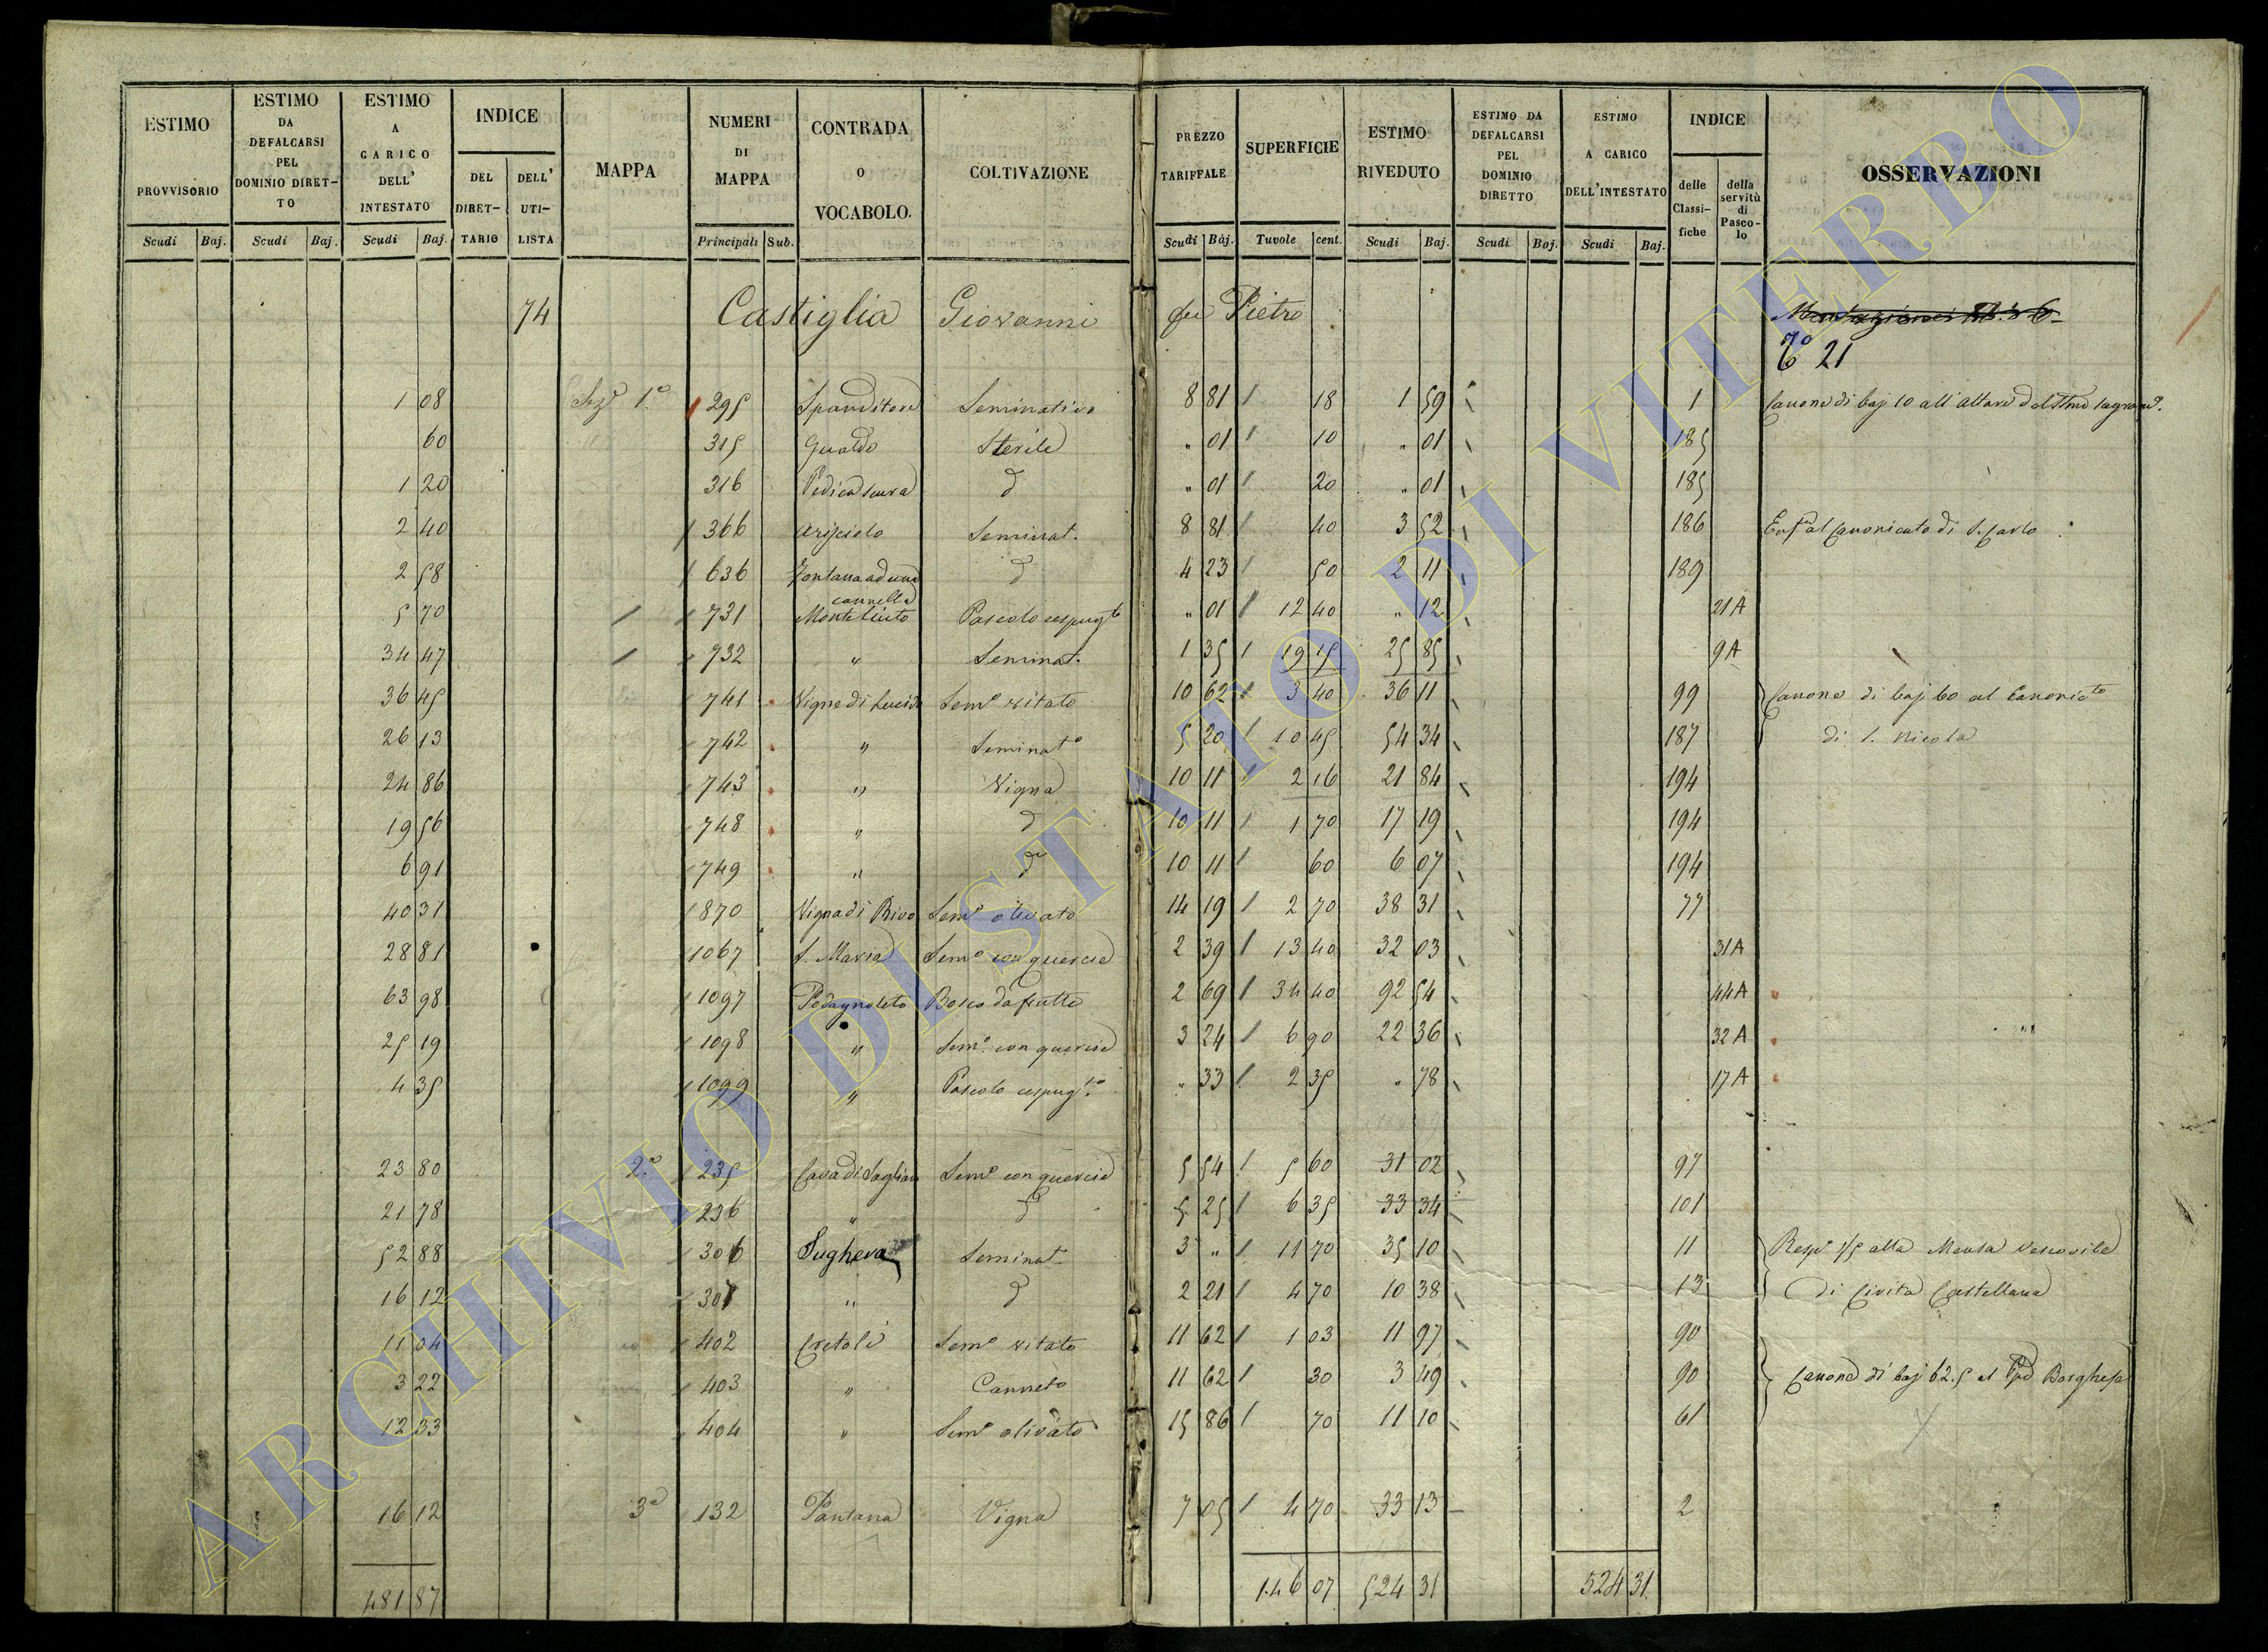 ESTIMO PROVVISORIO Scudi Baj.
ESTIMO DA DEFALCARSI PEL DOMINIO DIRET-TO Scudi Baj.
ESTIMO A CARICO DELL' INTESTATO Scudi Baj.
INDICE DEL DIRET-TARIO DELL' UTI-LISTA
MAPPA
NUMERI DI MAPPA Principali Sub.
CONTRADA O VOCABOLO.
COLTIVAZIONE
PREZZO TARIFFALE Scudi Baj.
SUPERFICIE Tavole cent.
ESTIMO RIVEDUTO Scudi Baj.
ESTIMO DA DEFALCARSI PEL DOMINIO DIRETTO Scudi Baj.
ESTIMO A CARICO DELL'INTESTATO Scudi Baj.
INDICE delle Classi-fiche della servitù di Pasco-lo
OSSERVAZIONI
74 Castiglia Giovanni fu Pietro
21
1 08 Sez.e 1.a 295 Seminativo 8 81 18 1 59 1 Canone di baj 10 all'Altare del
60 315 Gualdo Sterile " 01 10 " 01 185
1 20 316 d " 01 20 " 01 185
2 40 366 Seminat. 8 81 40 3 52 186 al Canonicato di S. Carlo
2 58 636 Fontana ad una cannella d 4 23 50 2 11 189
5 70 731 Pascolo cespugto " 01 12 40 " 12 21A
34 47 732 " Seminat. 1 35 19 15 25 85 9A
36 45 741 Vigne di Semo vitato 10 62 3 40 36 11 99 Canone di baj 60 al Canonicto
26 13 742 " Seminato 5 20 10 45 54 34 187 di S. Nicola
24 86 743 " Vigna 10 11 2 16 21 84 194
19 56 748 " d 10 11 1 70 17 19 194
6 91 749 " d 10 11 60 6 07 194
40 31 870 Vigna di Rivo Semo olivato 14 19 2 70 38 31 77
28 81 1067 S. Maria Semo con quercie 2 39 13 40 32 03 31A
63 98 1097 Bosco da frutto 2 69 34 40 92 54 44A
25 19 1098 " Semo con quercie 3 24 6 90 22 36 32A
4 35 1099 " Pascolo cespugto " 33 2 35 " 78 17A
23 80 2.a 235 Cava di Semo con quercie 5 54 5 60 31 02 97
21 78 236 " d 5 25 6 35 33 34 101
52 88 306 Sughera Seminat. 3 " 11 70 35 10 11 Respe 1/5 alla Mensa Vescovile
16 12 307 " d 2 21 4 70 10 38 13 di Civita Castellana
11 04 402 Cretole Semo vitato 11 62 1 03 11 97 90
3 22 403 " Canneto 11 62 30 3 49 90 Canone di baj 62.5 al Borghese
12 33 404 " Semo olivato 15 86 70 11 10 61
16 12 3a 132 Pantana Vigna 7 05 4 70 33 13 2
481 87 146 07 524 31 524 31
ARCHIVIO DI STATO DI VITERBO